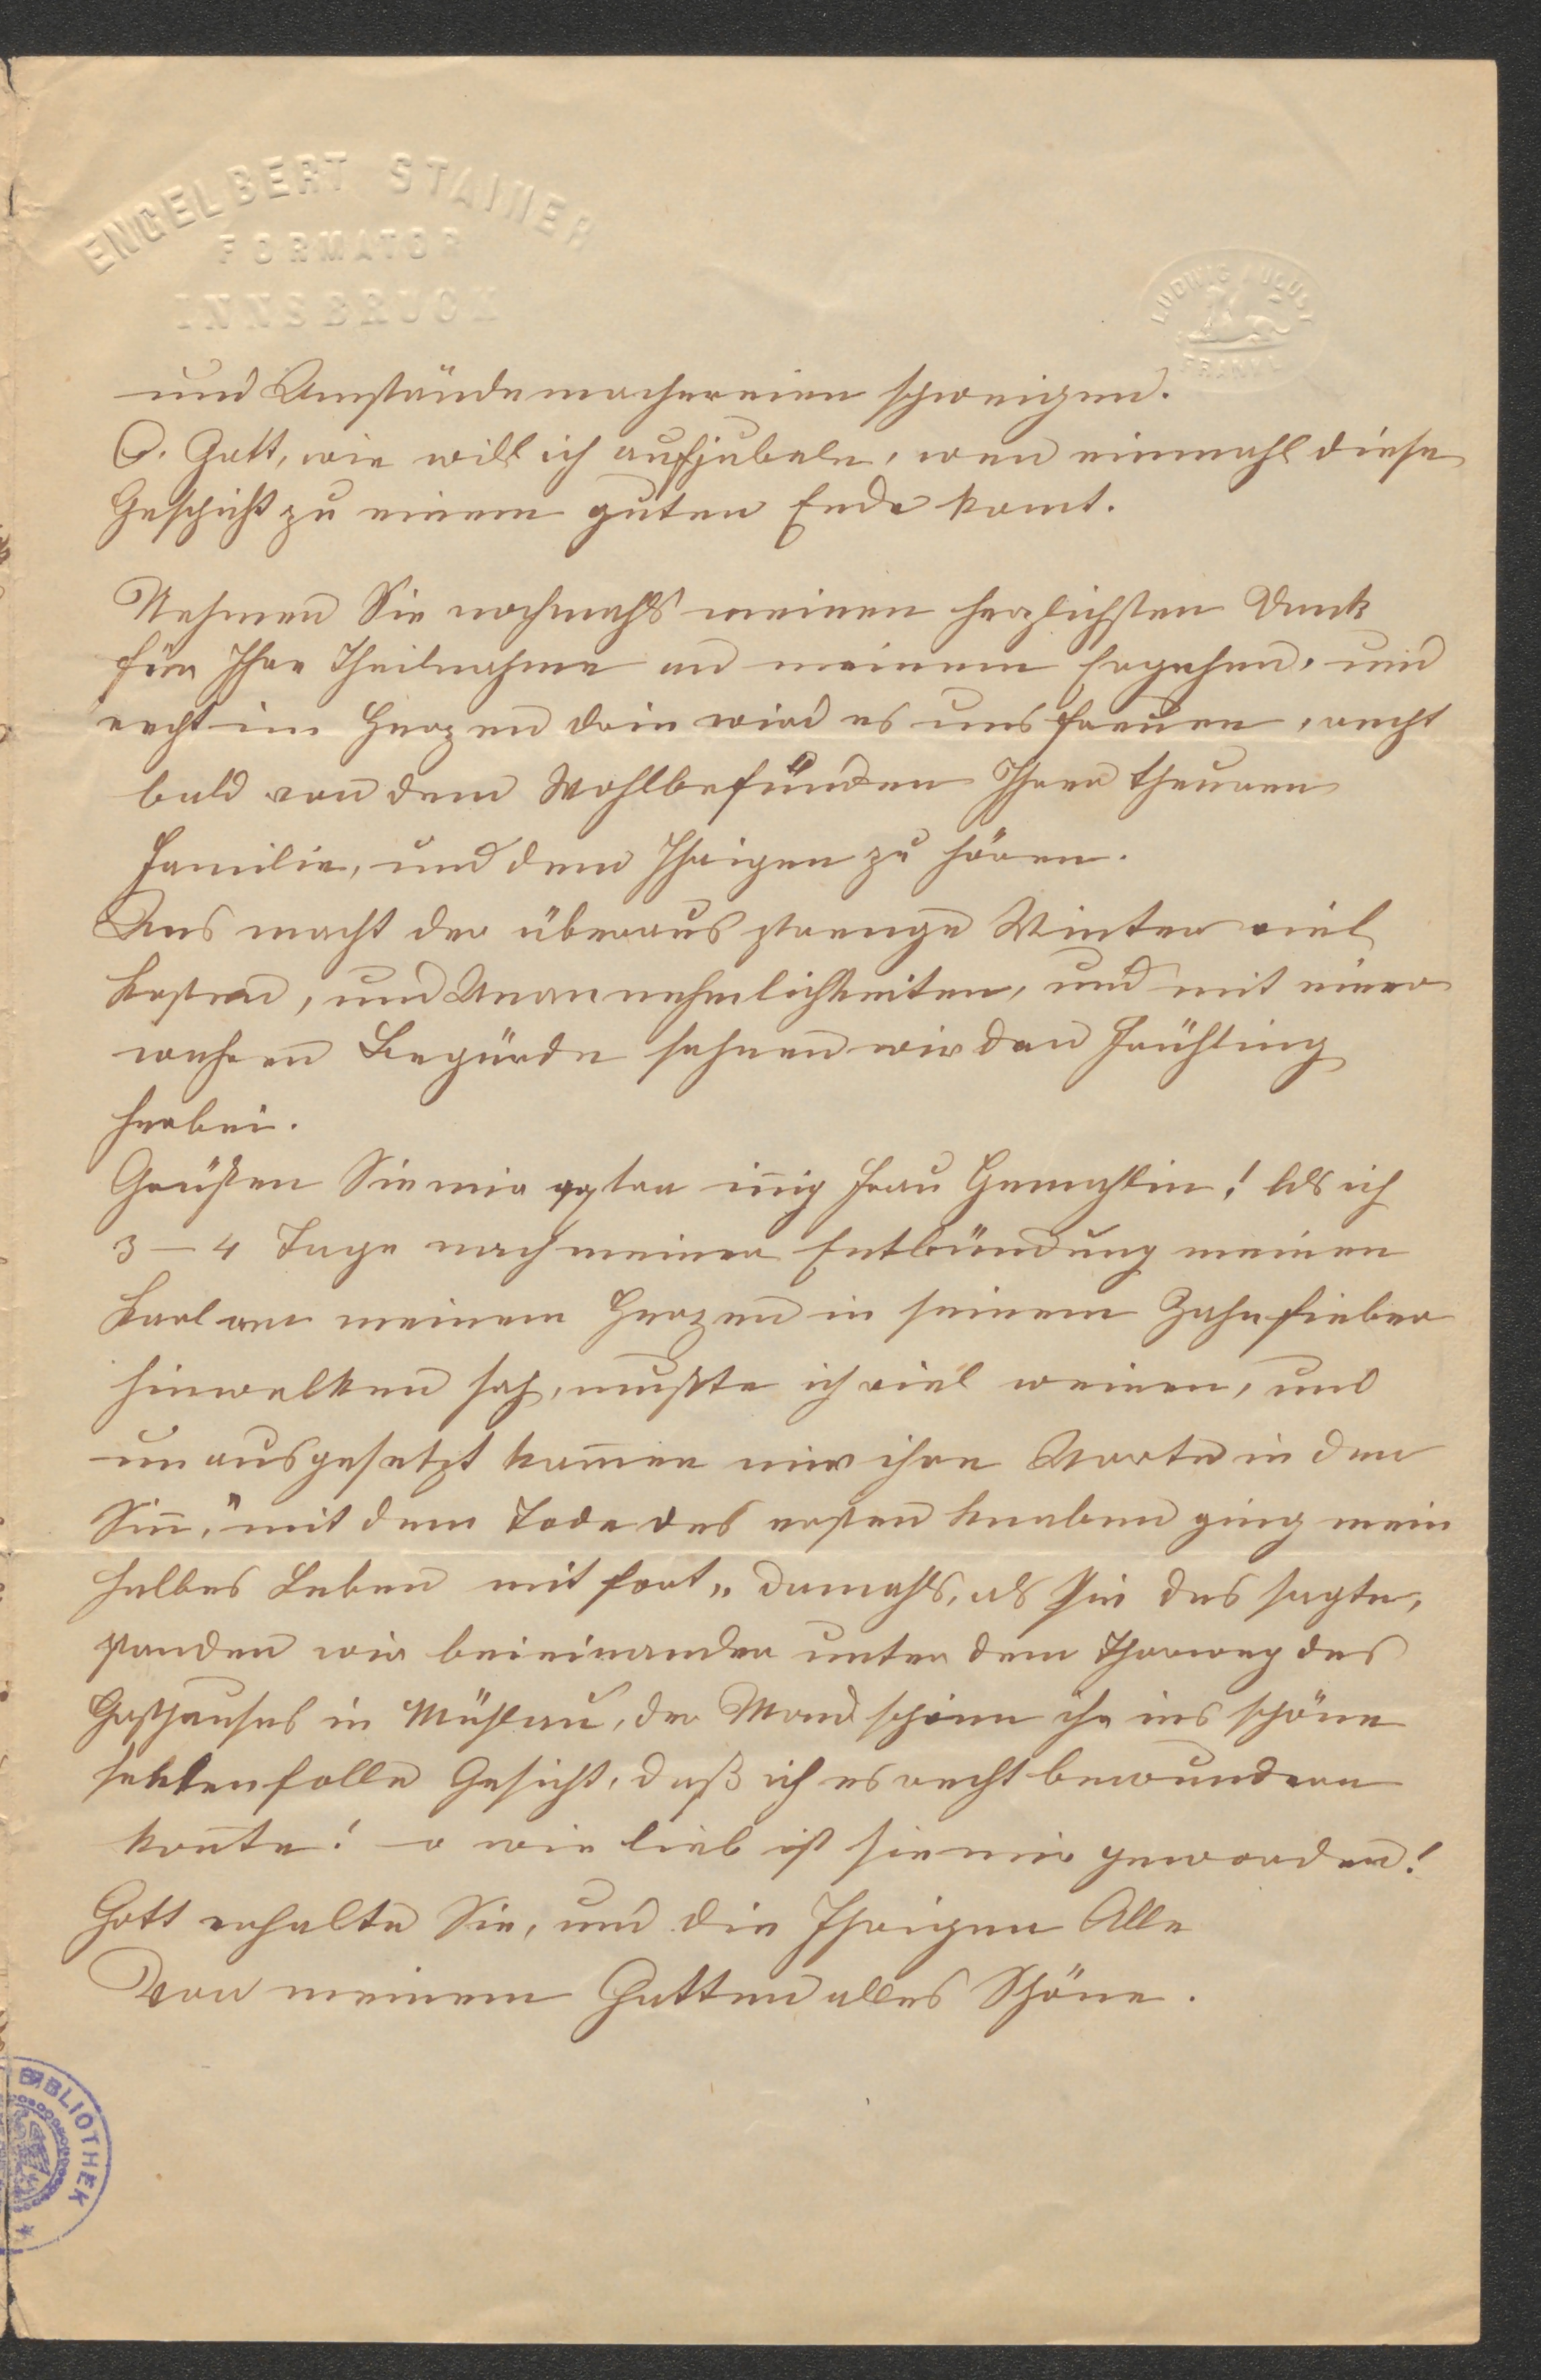 ENGELBERT STAINER
FORMATOR
INNSBRUCK
LUDWIG AUGUST
FRANKL
und Umständemachereien schweigen.
O. Gott, wie will ich aufjubeln, wen einmahl diese
Geschicht zu einem guten Ende komt.
Nehmen Sie nochmahls meinen herzlichsten Dank
für Ihre Theilnahme an meinem Ergehen, und
recht im Herzen drin wird es uns freuen, recht
bald von dem Wohlbefünden Ihrer theuren
Familie, und dem Ihrigen zu hören.
Uns macht der überaus strenge Winter viel
Kosten, und Unannehmlichkeiten, und mit einer
wahren Begürde sehnen wir den Frühling
herbei.
Grüßen Sie mir iñig Frau Gemahlin! Als ich
3–4 Tage nach meiner Entbündung meinen
Karl an meinem Herzen in seinem Zahnfieber
hinwelken sah, mußte ich viel weinen, und
unausgesetzt kam̄en mir ihre Worte in den
Siñ, "mit dem Tode des ersten Knaben ging mein
halbes Leben mit fort„ damahls, als Sie das sagte,
standen wir beieinander unter dem Thorweg des
Gasthauses in Mühlau, der Mond schien ihr ins schöne
seelenfolle Gesicht, daß ich es recht bewundern
koñte! – o wie lieb ist sie mir geworden!
Gott erhalte Sie, und die Ihrigen Alle
Von meinem Gatten alles Schöne.
BIBLIOTHEK